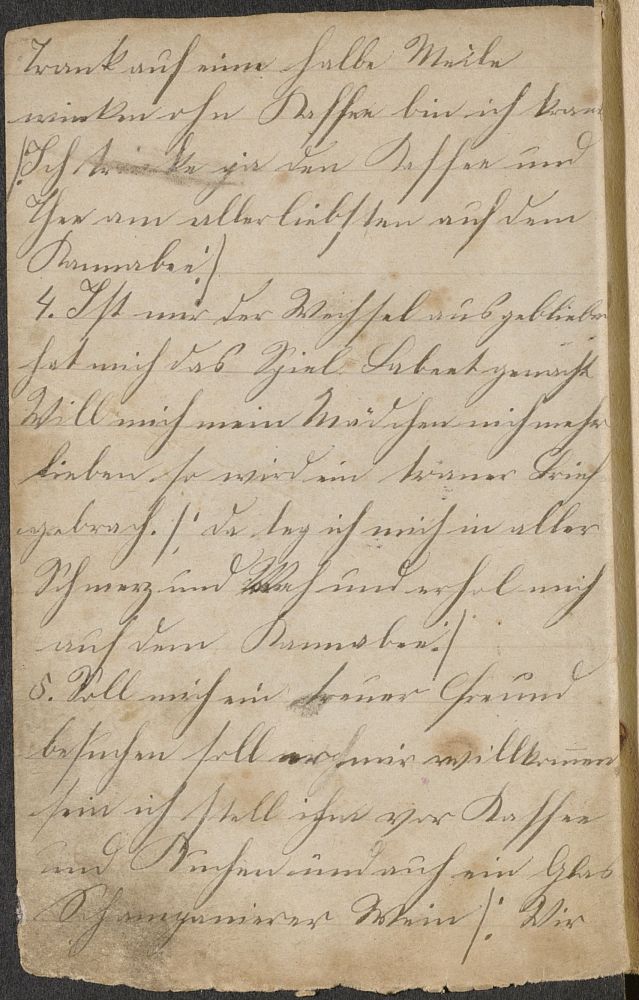 Trank auf eine halbe Meile
winken ohn Kaffee bin ich krank
/: Ich trinke ja den Kaffee und
Thee am allerliebsten auf dem
Kannabee :/
4. Ist mir der Wechsel ausgeblieben
hat mich das Spiel Labeet gemacht
Will mich mein Mädchen nich mehr
lieben so wird ein trauer Brief
gebrach. /: da leg ich mich in aller
Schmerz und Weh und erhol mich
auf dem Kannabee :/
5. Soll mich ein treuer Freund
besuchen soll er mir willkommen
sein ich stell ihm vor Kaffee
und Kuchen und auch ein Glas
Schampanierer Wein /: Wir